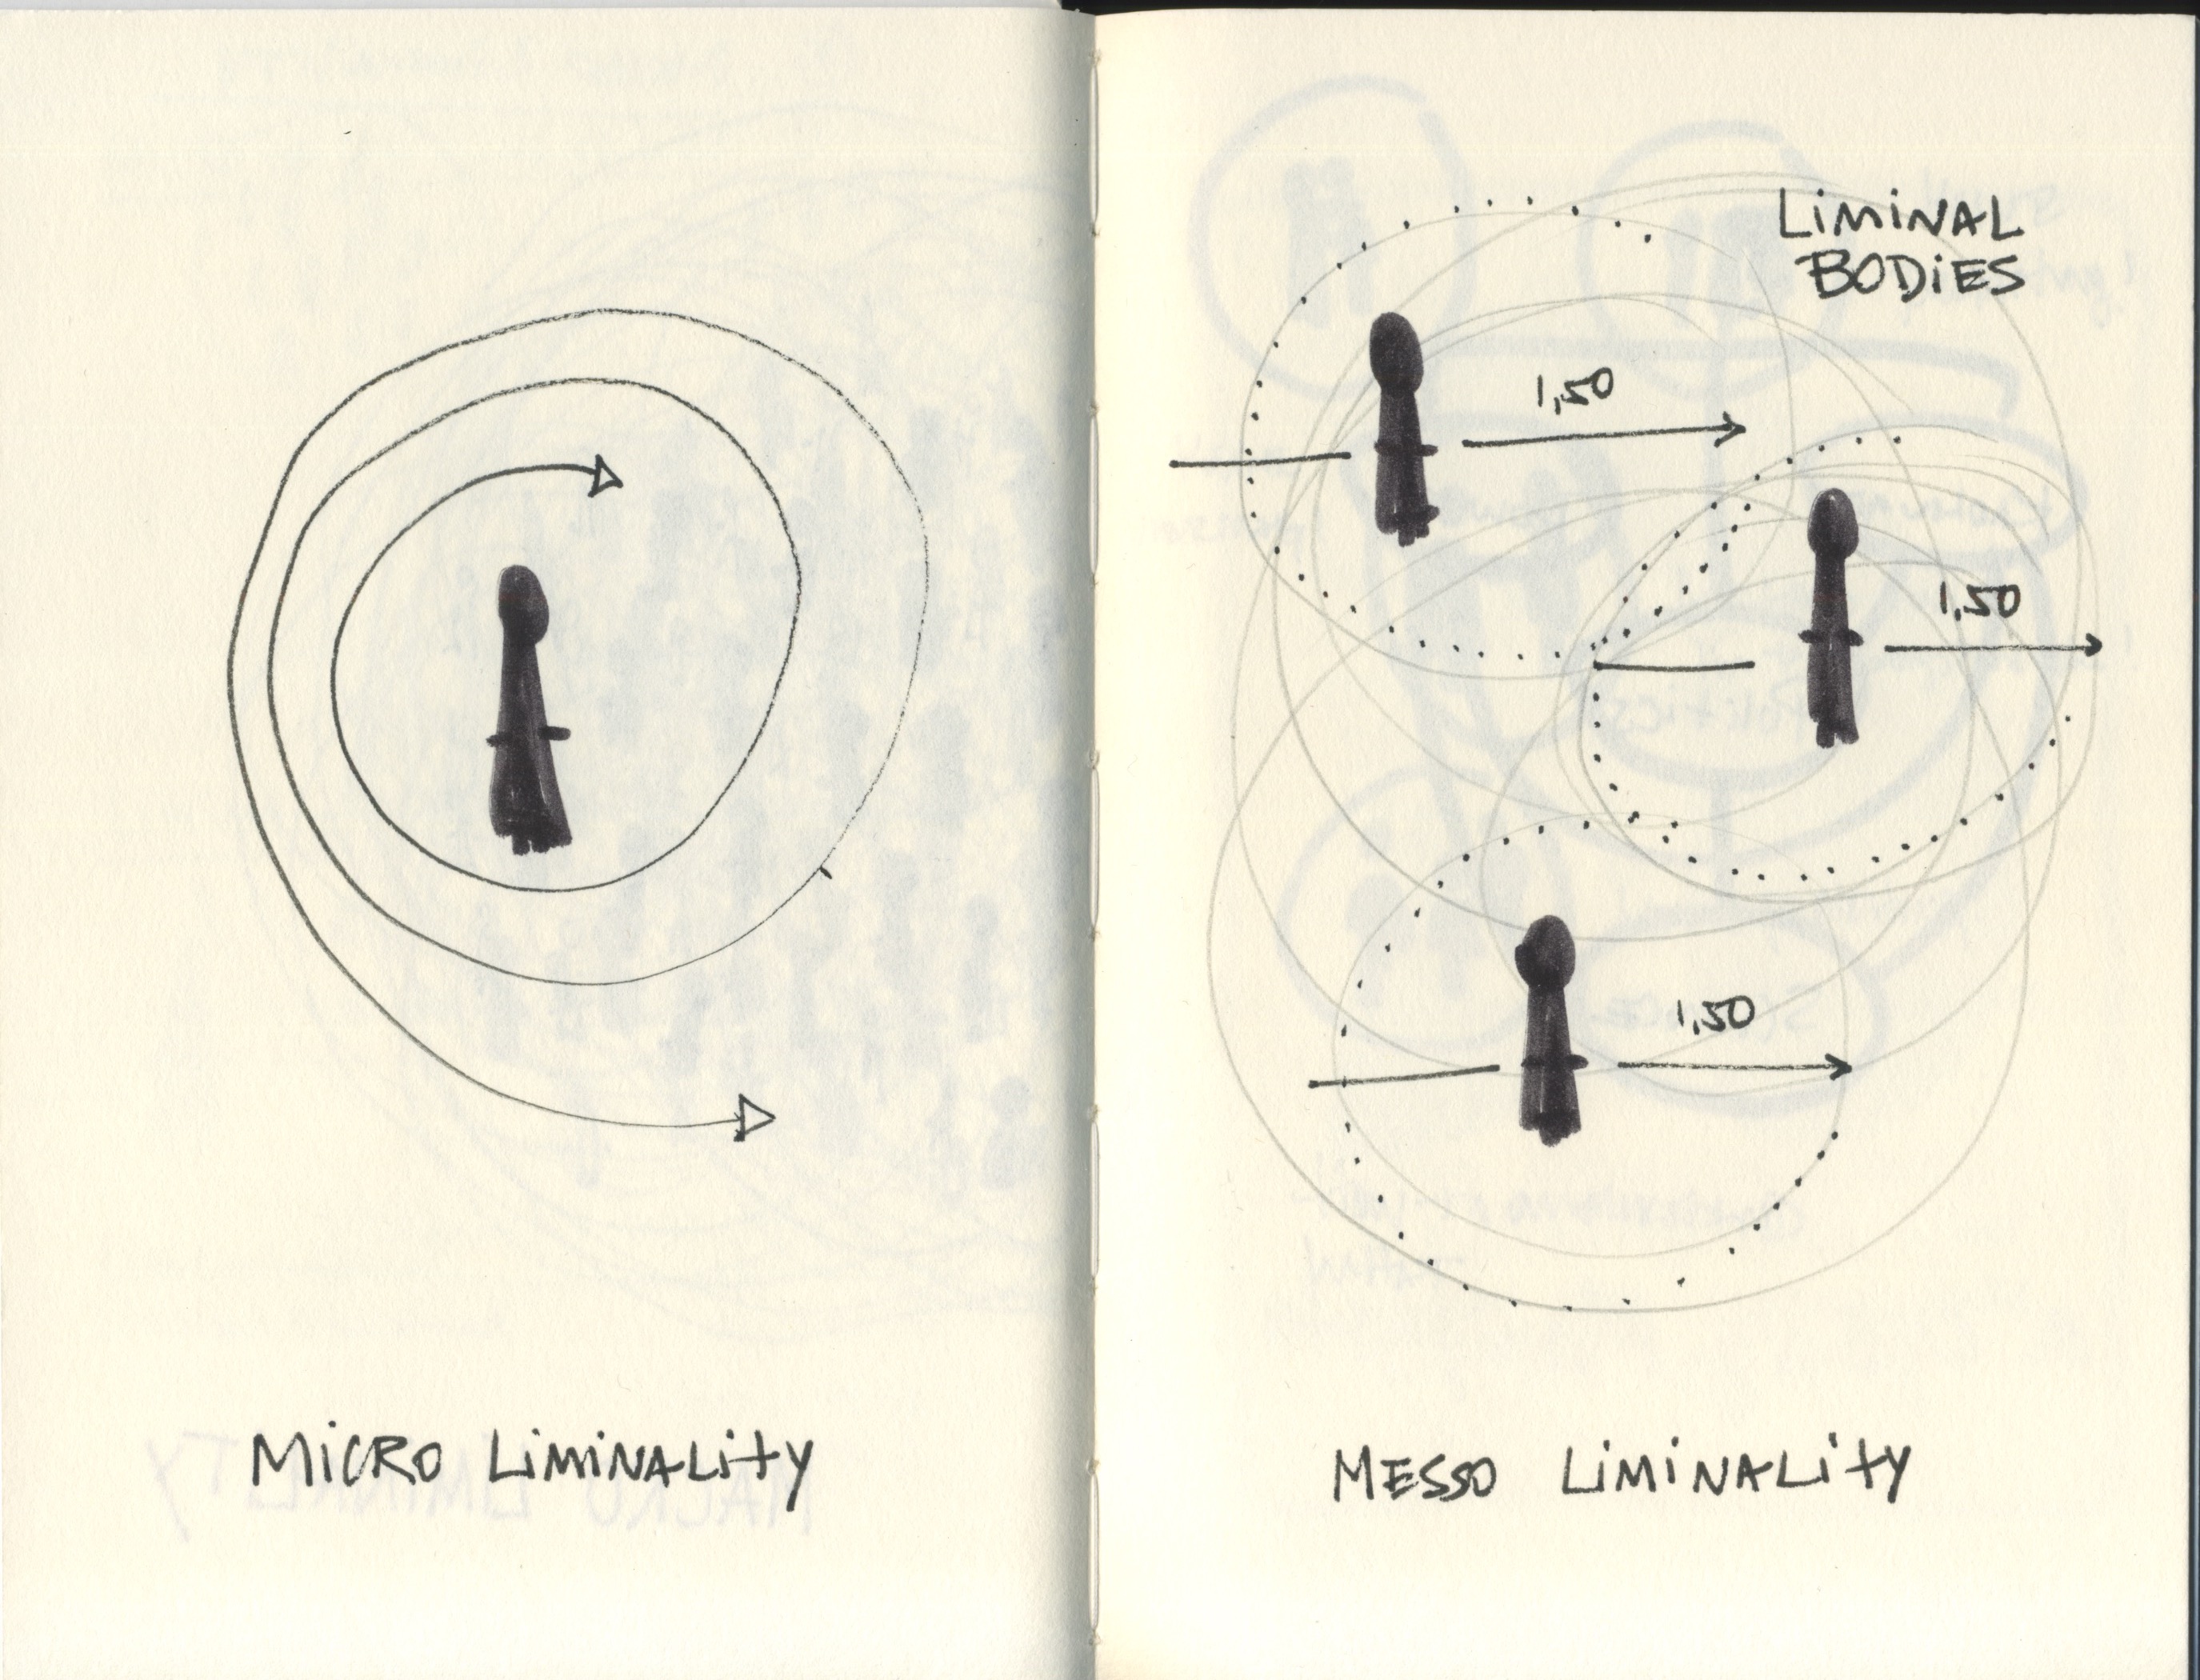 MiCRO LiMiNALity
LiMiNAL
BODiES
1,50
1,50
1,50
MESSO LiMiNALity